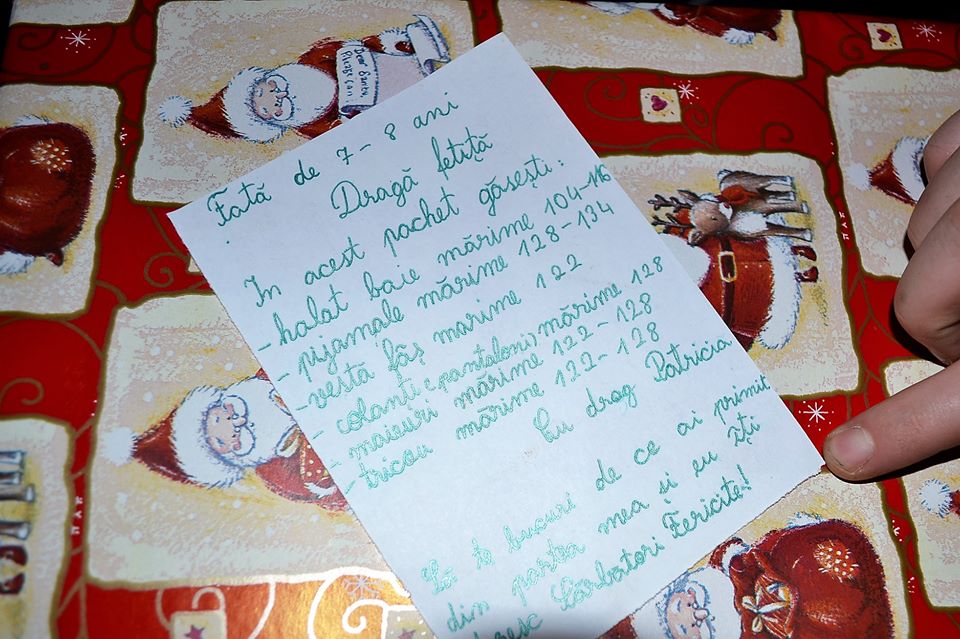 Fată de 7-8 ani
Dragă fetiță
In acest pachet găsești:
-halat baie mărime 104-116
- pijamale mărime 128-134
-vestă fâș mărime 122
colanti (pantaloni) mărime 128
- maieuri mărime 122-128
- tricou mărime 122-128
Cu drag Patricia
Să te bucuri de ce ai primit
din partea mea și eu îți
Sărbători Fericite!
Dear Santa,